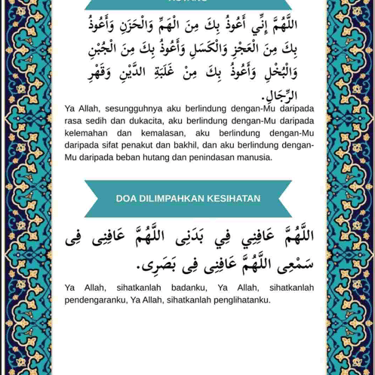 اللَّهُمَّ إِنِّي أَعُوذُ بِكَ مِنَ الْهَمِّ وَالْحَزَنِ وَأَعُوذُ
بِكَ مِنَ الْعَجْزِ وَالْكَسَلِ وَأَعُوذُ بِكَ مِنَ الْجُبْنِ
وَالْبُخْلِ وَأَعُوذُ بِكَ مِنْ غَلَبَةِ الدَّيْنِ وَقَهْرِ
الرِّجَالِ.
Ya Allah, sesungguhnya aku berlindung dengan-Mu daripada
rasa sedih dan dukacita, aku berlindung dengan-Mu daripada
kelemahan dan kemalasan, aku berlindung dengan-Mu
daripada sifat penakut dan bakhil, dan aku berlindung dengan-
Mu daripada beban hutang dan penindasan manusia.
DOA DILIMPAHKAN KESIHATAN
اللَّهُمَّ عَافِنِي فِي بَدَنِى اللَّهُمَّ عَافِنِى فِى
سَمْعِى اللَّهُمَّ عَافِنِى فِى بَصَرِى.
Ya Allah, sihatkanlah badanku, Ya Allah, sihatkanlah
pendengaranku, Ya Allah, sihatkanlah penglihatanku.